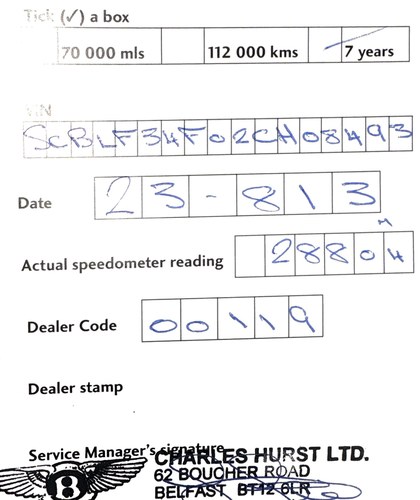 Tick (✓) a box
70 000 mls 112 000 kms 7 years
VIN
SCBLF34F02CH08493
Date 23-813
M
Actual speedometer reading 28804
Dealer Code 00119
Dealer stamp
Service Manager's signature
CHARLES HURST LTD.
62 BOUCHER ROAD
BELFAST BT12 6LR
B